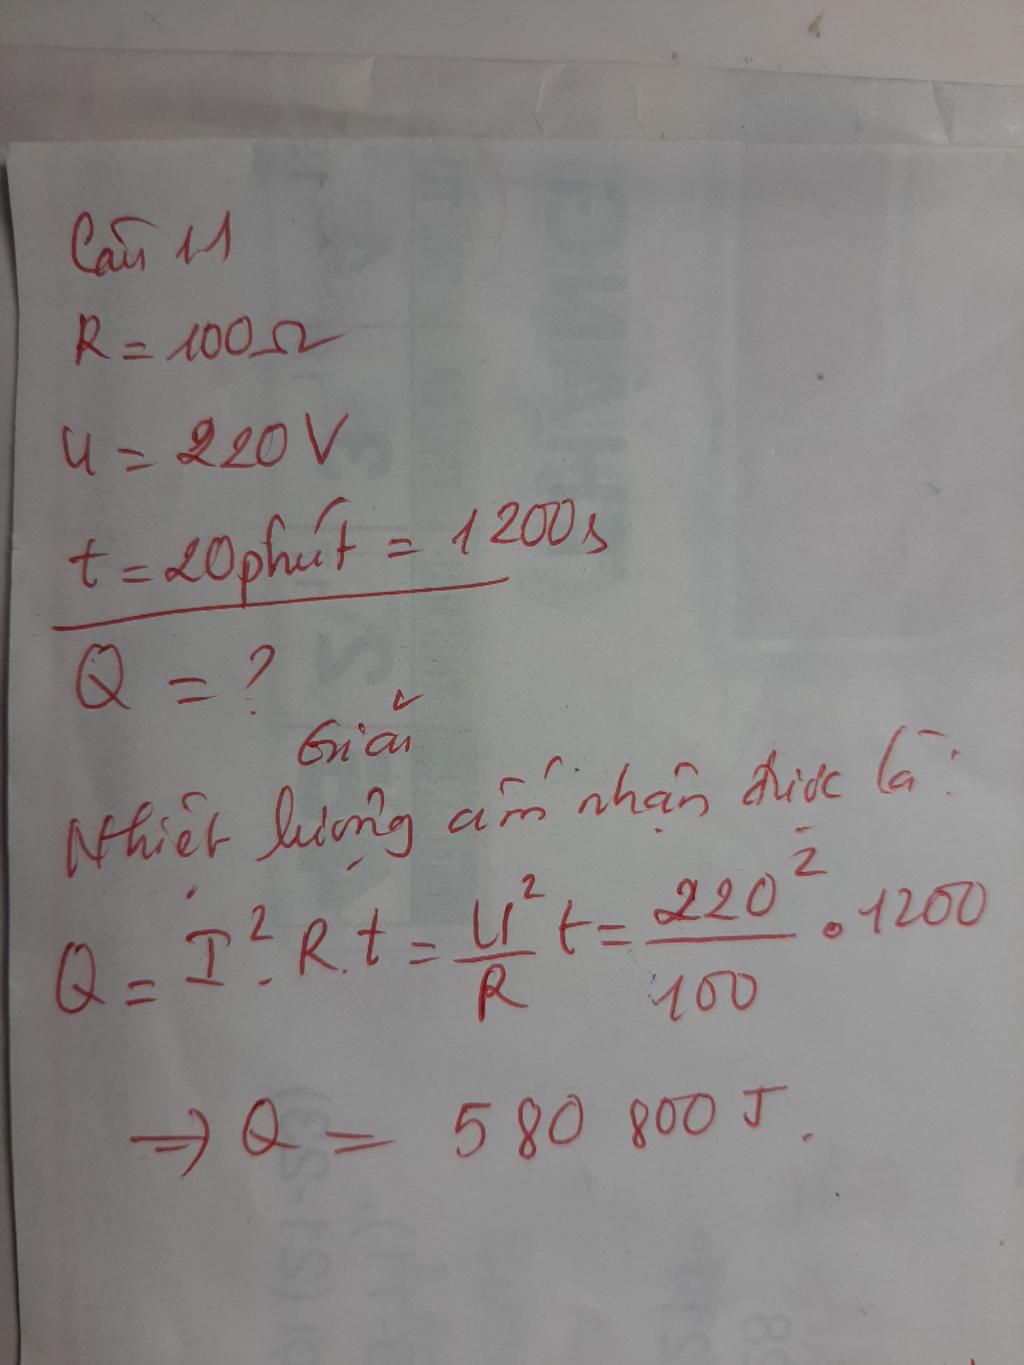 Câu 11
R = 100Ω
U = 220V
t = 20phút = 1200s
Q = ?
Giải
Nhiệt lượng ấm nhận được là:
Q = I². R. t = U²/R t = 220²/100 . 1200
=> Q = 580 800 J.